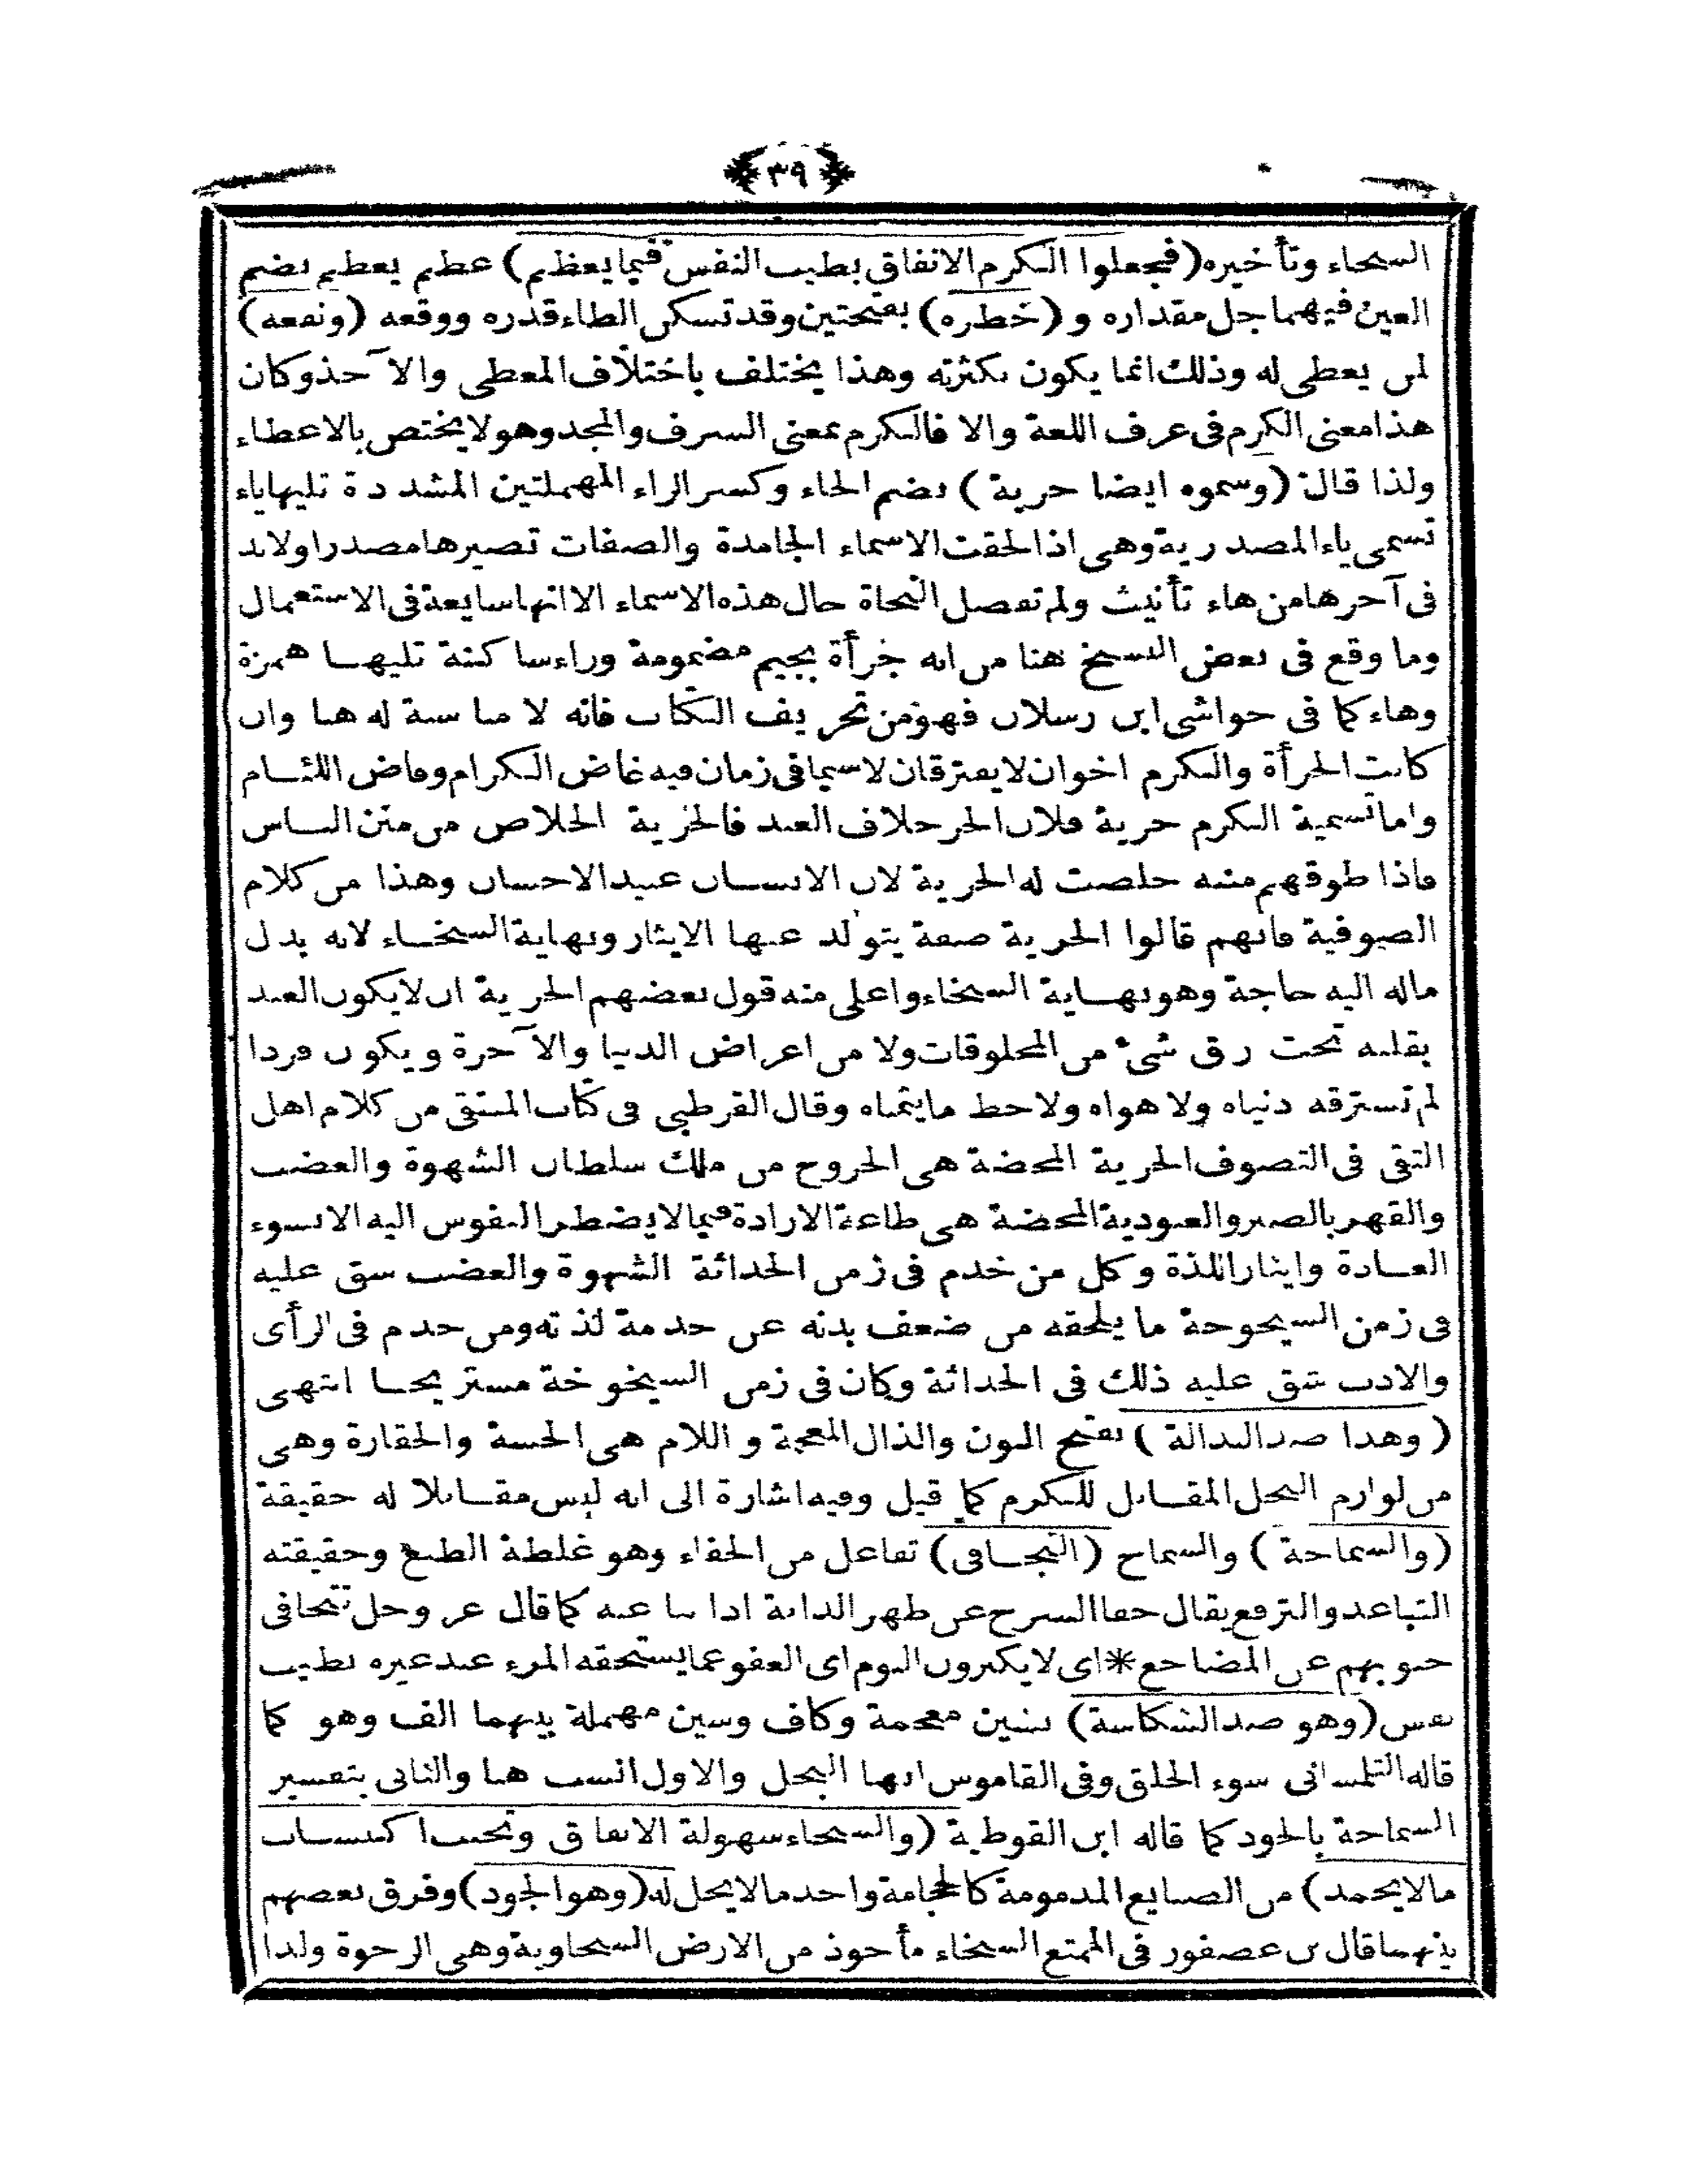 ﴿ ٣٩ ﴾
السخاء وتأخيره (فجعلوا الكرم الانفاق بطيب النفس فيما يعظم) عظم يعظم بضم
العين فيهما جل مقداره و (خطره) بفتحتين وقد تسكن الطاء قدره ووقعه (ونفعه)
لمن يعطى له وذلك انما يكون بكثرته وهذا يختلف باختلاف المعطى والآخذ وكان
هذا معنى الكرم فى عرف اللغة والا فالكرم بمعنى الشرف والمجد وهو لا يختص بالاعطاء
ولذا قال (وسموه ايضا حرية) بضم الحاء وكسر الراء المهملتين المشددة تليها ياء
تسمى ياء المصدرية وهى اذا لحقت الاسماء الجامدة والصفات تصيرها مصدرا ولابد
فى آخرها من هاء تأنيث ولم تفصل النحاة حال هذه الاسماء الا انها سايغة فى الاستعمال
وما وقع فى بعض النسخ هنا من انه جرأة بجيم مضمومة وراء ساكنة تليها همزة
وهاء كما فى حواشى ابن رسلان فهو من تحريف الكتاب فانه لا مناسبة له هنا وان
كانت الجرأة والكرم اخوان لا يفترقان لاسيما فى زمان فيه غاض الكرام وفاض اللئام
واما تسمية الكرم حرية فلان الحر خلاف العبد فالحرية الخلاص من منن الناس
فاذا طوقهم مننه خلصت له الحرية لان الانسان عبيد الاحسان وهذا من كلام
الصوفية فانهم قالوا الحرية صفة يتولد عنها الايثار ونهاية السخاء لانه بذل
ماله اليه حاجة وهو نهاية السخاء واعلى منه قول بعضهم الحرية ان لا يكون العبد
بقلبه تحت رق شئ من المخلوقات ولا من اعراض الدنيا والآخرة ويكون فردا
لم تسترقه دنياه ولا هواه ولا حظ ما يتمناه وقال القرطبى فى كتاب المنتقى من كلام اهل
التقى فى التصوف الحرية المحضة هى الخروج من ملك سلطان الشهوة والغضب
والقهر بالصبر والعبودية المحضة هى طاعة الارادة فيما لا يضطر النفوس اليه الا بسوء
العادة وايثار اللذة وكل من خدم فى زمن الحداثة الشهوة والغضب شق عليه
فى زمن الشيخوخة ما يلحقه من ضعف بدنه عن خدمة لذته ومن خدم فى الرأى
والادب شق عليه ذلك فى الحداثة وكان فى زمن الشيخوخة مستريحا انتهى
(وهذا ضد النذالة) بفتح النون والذال المعجمة واللام هى الخسة والحقارة وهى
من لوازم البخل المقابل للكرم كما قيل وفيه اشارة الى انه ليس مقابلا له حقيقة
(والسماحة) والسماح (التجافى) تفاعل من الجفاء وهو غلظة الطبع وحقيقته
التباعد والترفع يقال جفا السرج عن ظهر الدابة اذا نبا عنه كما قال عز وجل تتجافى
جنوبهم عن المضاجع * اى لا يكثرون النوم اى العفو عما يستحقه المرء عند غيره بطيب
نفس (وهو ضد الشكاسة) بشين معجمة وكاف وسين مهملة بينهما الف وهو كما
قاله التلمسانى سوء الخلق وفى القاموس انها البخل والاول انسب هنا والثانى بتفسير
السماحة بالجود كما قاله ابن القوطية (والسخاء سهولة الانفاق وتجنب اكتساب
مالا يحمد) من الصنايع المذمومة كالحجامة واخذ مالا يحل له (وهو الجود) وفرق بعضهم
بينهما قال بن عصفور فى الممتع السخاء مأخوذ من الارض السخاوية وهى الرخوة ولذا